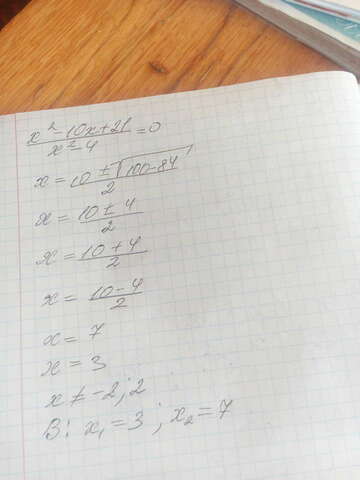 x² - 10x + 21 / x² - 4 = 0
x = 10 ± √100 - 84 / 2
x = 10 ± 4 / 2
x = 10 + 4 / 2
x = 10 - 4 / 2
x = 7
x = 3
x ≠ -2; 2
В: x₁ = 3 ; x₂ = 7